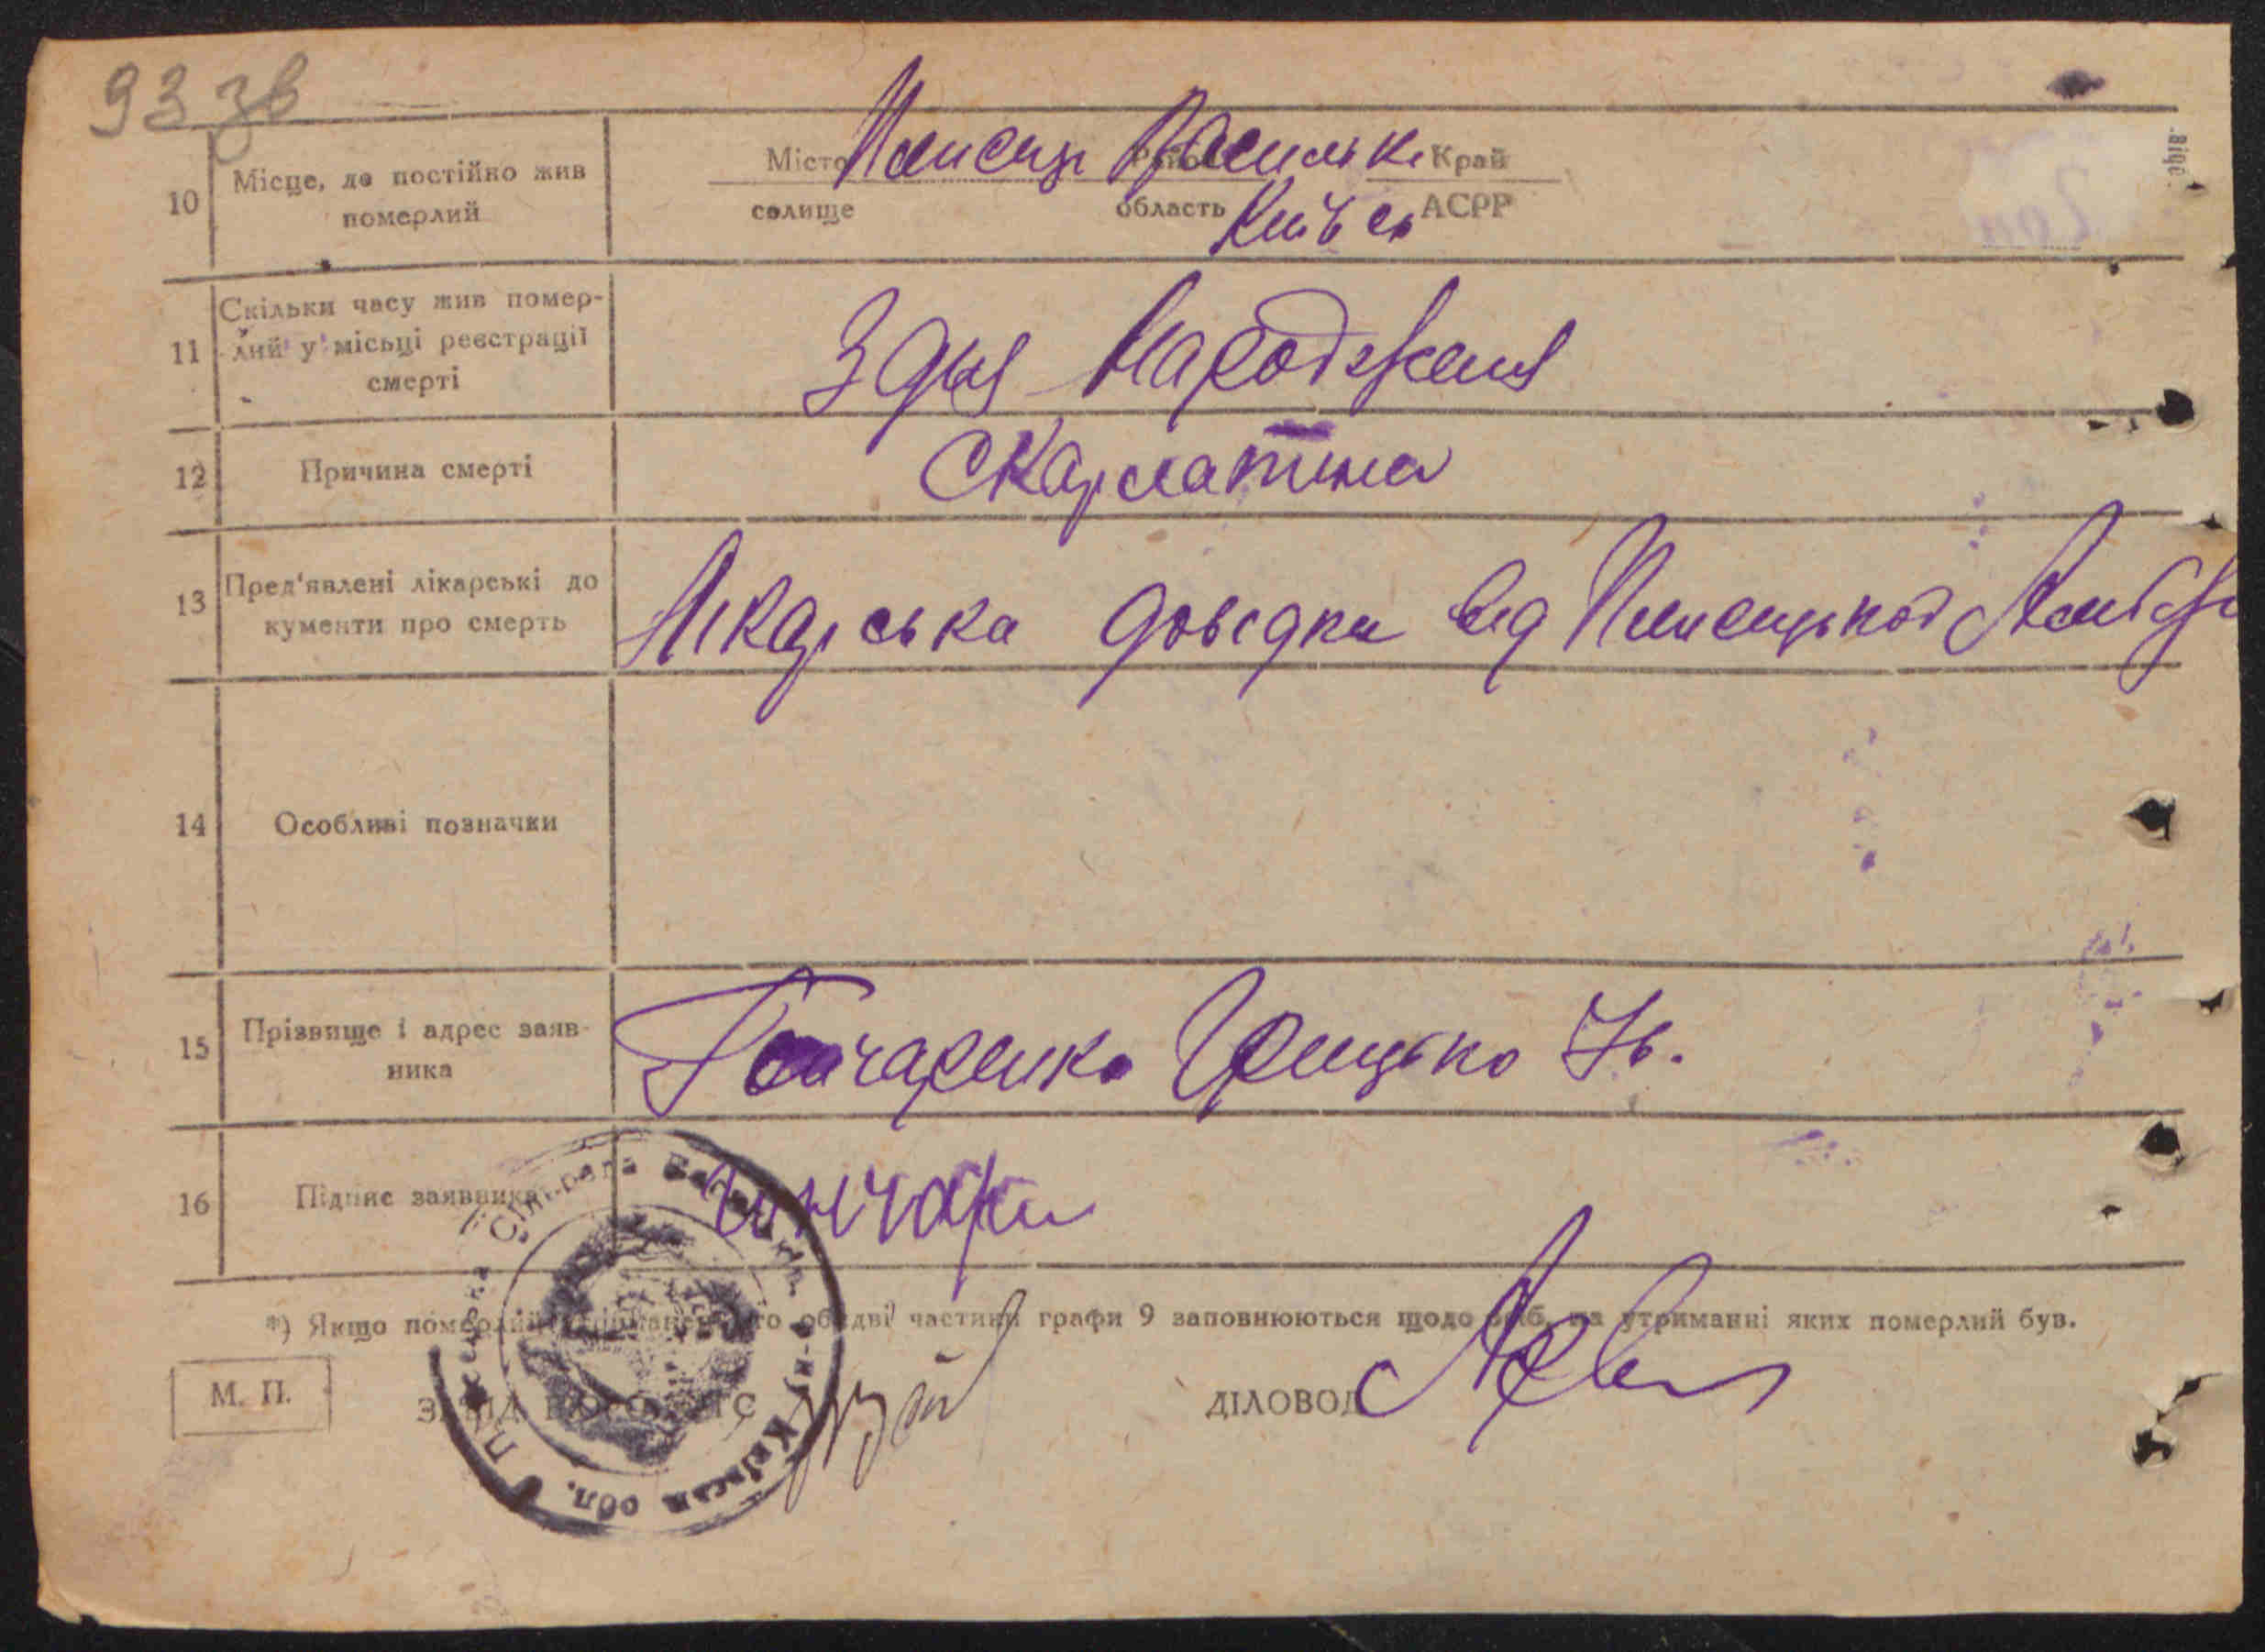 93 зв
10 Місце, де постійно жив померлий
Місто Плисецьке Район Васильк. Край
селище область Київськ АСРР
11 Скільки часу жив помер-
лий у місьці реєстрації
смерті
З дня народження
12 Причина смерті
Скарлатина
13 Пред'явлені лікарські до
кументи про смерть
Лікарська довідка від Плисецької Амб
14 Особливі позначки
15 Прізвище і адрес заяв-
ника
Гончаренко Грицько Ів.
16 Підпис заявника
гончаре
*) Якщо померлий то обидві частини графи 9 заповнюються щодо осіб, на утриманні яких померлий був.
М. П.
ДІЛОВОД
Сільрада р-ну Київськ обл.